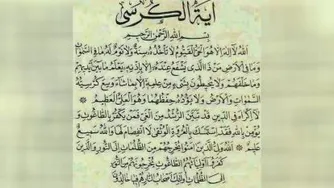 آية الكرسي
بسم الله الرحمن الرحيم
الله لا اله الا هو الحي القيوم لا تأخذه سنة ولا نوم له ما في السموات
وما في الارض من ذا الذي يشفع عنده الا باذنه يعلم ما بين ايديهم
وما خلفهم ولا يحيطون بشيء من علمه الا بما شاء وسع كرسيه
السموات والارض ولا يؤده حفظهما وهو العلي العظيم
لا اكراه في الدين قد تبين الرشد من الغي فمن يكفر بالطاغوت
ويؤمن بالله فقد استمسك بالعروة الوثقى لا انفصام لها والله سميع
عليم الله ولي الذين امنوا يخرجهم من الظلمات الى النور والذين
كفروا اولياؤهم الطاغوت يخرجونهم من النور
الى الظلمات اولئك اصحاب النار هم فيها خالدون